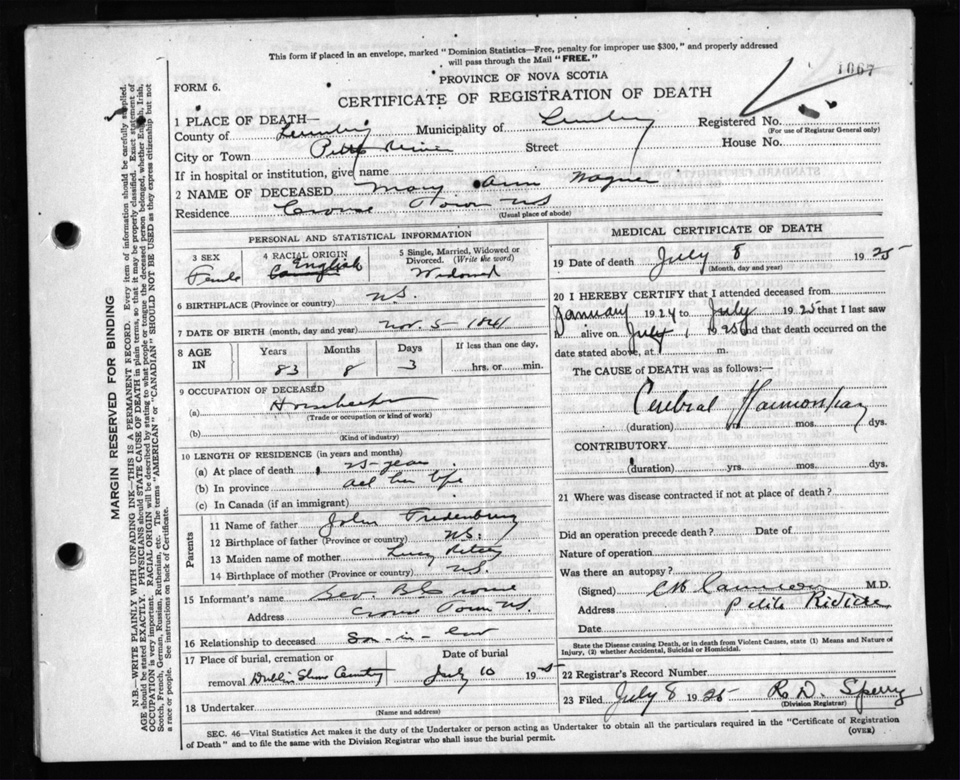 This form if placed in an envelope, marked "Dominion Statistics—Free, penalty for improper use $300," and properly addressed
will pass through the Mail "FREE."
PROVINCE OF NOVA SCOTIA
1067
FORM 6.
CERTIFICATE OF REGISTRATION OF DEATH
1 PLACE OF DEATH—
County of Municipality of Registered No.
(For use of Registrar General only)
City or Town Street House No.
If in hospital or institution, give name
2 NAME OF DECEASED Mary Ann Wagner
Residence Crouse Town NS
(Usual place of abode)
PERSONAL AND STATISTICAL INFORMATION
3 SEX 4 RACIAL ORIGIN 5 Single, Married, Widowed or
Divorced. (Write the word)
Female English Widowed
6 BIRTHPLACE (Province or country) NS.
7 DATE OF BIRTH (month, day and year) Nov. 5 1841
8 AGE IN Years Months Days If less than one day,
83 8 3 hrs. or min.
9 OCCUPATION OF DECEASED
(a) Housekeeper
(Trade or occupation or kind of work)
(b)
(Kind of industry)
10 LENGTH OF RESIDENCE (in years and months)
(a) At place of death 25 years
(b) In province all her life
(c) In Canada (if an immigrant)
Parents
11 Name of father John
12 Birthplace of father (Province or country) NS.
13 Maiden name of mother Lucy
14 Birthplace of mother (Province or country) NS.
15 Informant's name Crouse
Address Crouse Town NS.
16 Relationship to deceased Son-in-law
17 Place of burial, cremation or Date of burial
removal Dublin Shore Cemetery July 10 1925
18 Undertaker
(Name and address)
MEDICAL CERTIFICATE OF DEATH
19 Date of death July 8 1925
(Month, day and year)
20 I HEREBY CERTIFY that I attended deceased from
January 1924 to July 1925 that I last saw
h alive on July 1 1925 and that death occurred on the
date stated above, at m.
The CAUSE of DEATH was as follows:—
Cerebral
(duration) yrs. mos. dys.
CONTRIBUTORY
(duration) yrs. mos. dys.
21 Where was disease contracted if not at place of death?
Did an operation precede death? Date of
Nature of operation
Was there an autopsy?
(Signed) M.D.
Address Petite Riviere
Date
State the Disease causing Death, or in death from Violent Causes, state (1) Means and Nature of
Injury, (2) whether Accidental, Suicidal or Homicidal.
22 Registrar's Record Number
23 Filed July 8 1925 R. D. Sperry
(Division Registrar)
SEC. 46—Vital Statistics Act makes it the duty of the Undertaker or person acting as Undertaker to obtain all the particulars required in the "Certificate of Registration
of Death" and to file the same with the Division Registrar who shall issue the burial permit.
(OVER)
MARGIN RESERVED FOR BINDING
N.B.—WRITE PLAINLY WITH UNFADING INK—THIS IS A PERMANENT RECORD. Every item of information should be carefully supplied.
AGE should be stated EXACTLY. PHYSICIANS should STATE CAUSE OF DEATH in plain terms, so that it may be properly classified. Exact statement of
OCCUPATION is very important. RACIAL ORIGIN will be described by stating to what people or tongue the deceased person belonged, whether English, Irish,
Scotch, French, German, Russian, Ruthenian, etc. The terms "AMERICAN" or "CANADIAN" SHOULD NOT BE USED as they express citizenship but not
a race or people. See instructions on back of Certificate.